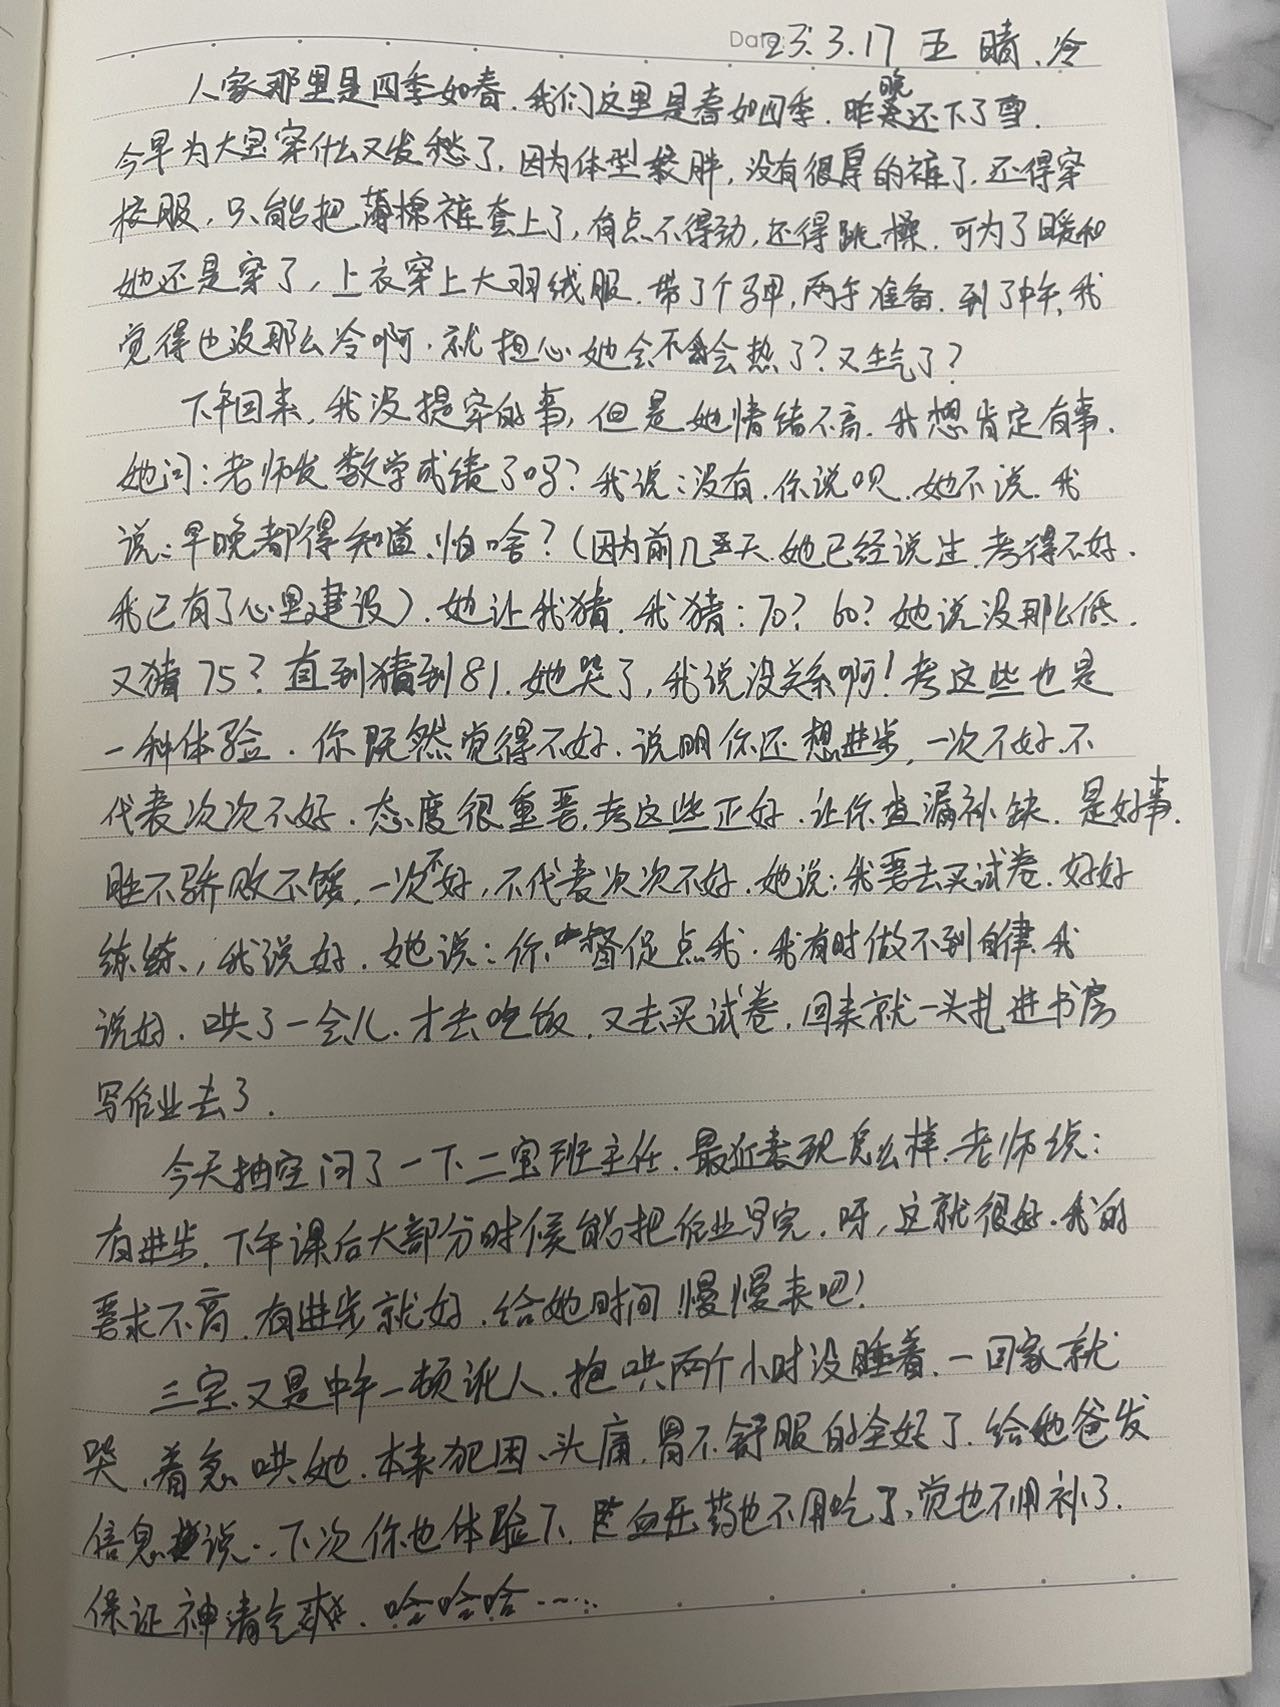 Date 23.3.17 五 晴、冷
人家那里是四季如春.我们这里是春如四季.昨晚还下了雪.
今早为大宝穿什么又发愁了.因为体型较胖,没有很厚的裤了.还得穿
校服,只能把薄棉裤套上了,有点不得劲,还得跳操.可为了暖和
她还是穿了,上衣穿上大羽绒服.带了个马甲,两手准备.到了中午,我
觉得也没那么冷啊.就担心她会不会热了?又生气了?
下午回来,我没提穿的事,但是她情绪不高.我想肯定有事.
她问:老师发数学成绩了吗?我说:没有.你说呗.她不说.我
说:早晚都得知道、怕啥?(因为前几天她已经说过.考得不好.
我已有了心里建设).她让我猜.我猜:70?60?她说没那么低.
又猜75?直到猜到81.她哭了,我说没关系啊!考这些也是
一种体验.你既然觉得不好.说明你还想进步,一次不好.不
代表次次不好.态度很重要.考这些正好.让你查漏补缺.是好事.
胜不骄败不馁,一次不好,不代表次次不好.她说:我要去买试卷.好好
练练,我说好.她说:你督促点我.我有时做不到自律.我
说好.哄了一会儿.才去吃饭.又去买试卷.回来就一头扎进书房
写作业去了.
今天抽空问了一下二宝班主任.最近表现怎么样.老师说:
有进步.下午课后大部分时候能把作业写完.呀,这就很好.我的
要求不高.有进步就好.给她时间慢慢来吧!
三宝又是中午一顿讹人.抱哄两个小时没睡着.一回家就
哭、着急哄她.本来犯困、头痛,胃不舒服的全好了.给她爸发
信息说..下次你也体验下、血压药也不用吃了、觉也不用补了.
保证神清气爽.哈哈哈……